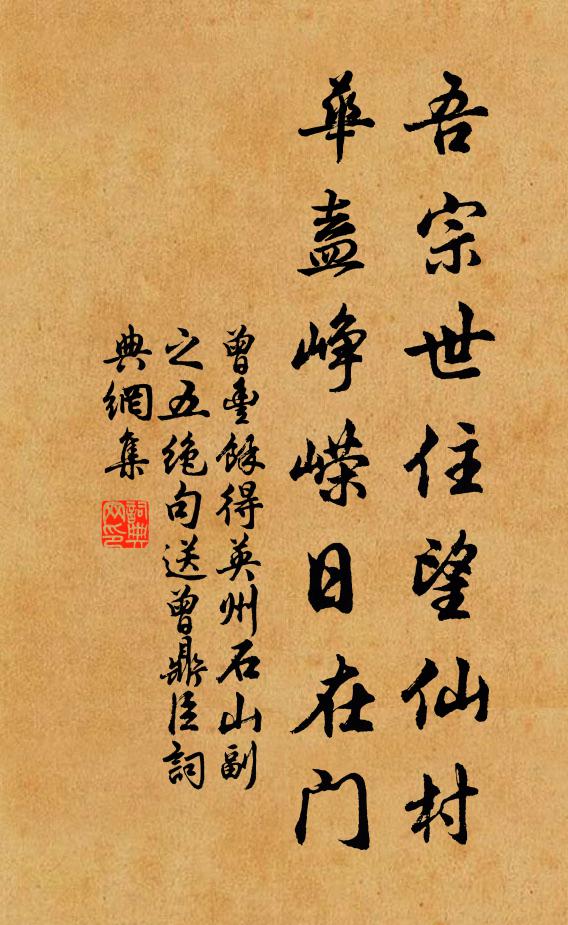 吾宗世住望仙村
華蓋峥嶸日在門
曾豐餘得英州石山副
之五絶句送曾鼎臣詞
典網集
詞典
网印